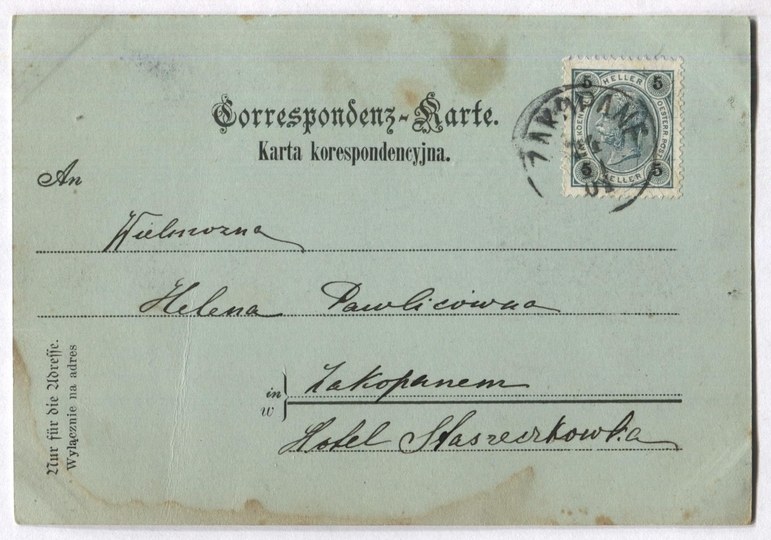 Correspondenz-Karte.
Karta korespondencyjna.
5 HELLER 5
OESTERR. POST
5 HELLER 5
ZAKOPANE
01
An
Wielmożna
Helena Pawlicówna
in
w
Zakopanem
Hotel Staszeczkówka
Nur für die Adresse.
Wyłącznie na adres